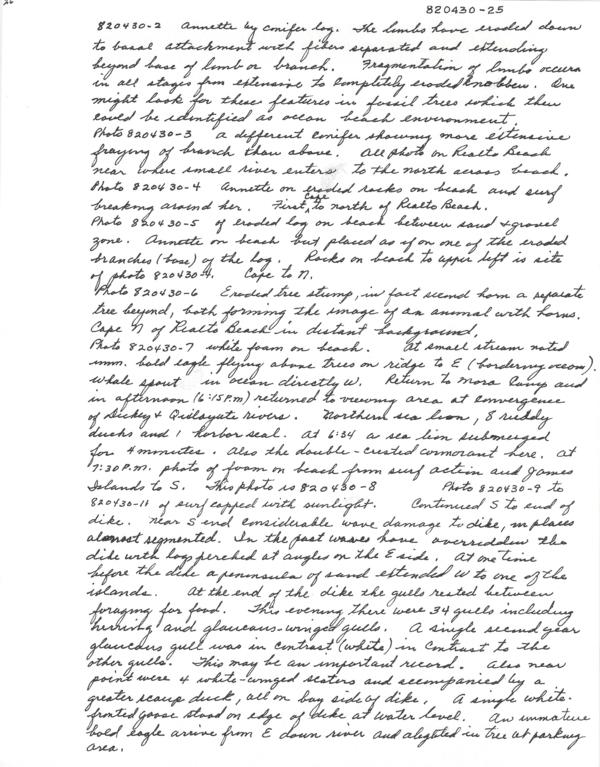 26
820430-25
820430-2 Annette by conifer log. The limbs have eroded down
to basal attachment with fibers separated and extending
beyond base of lomb or branch. Fragmentation of limbs occurs
in all stages from extensive to completely eroded knobben. One
might look for these features in fossil trees which then
could be identified as ocean beach environment.
Photo 820430-3 a different conifer showing more extensive
fraying of branch than above. All photo on Rialto Beach
near where small river enters to the north across beach.
Photo 820430-4 Annette on eroded rocks on beach and surf
breaking around her. First Cape to north of Rialto Beach.
Photo 820430-5 of eroded log on beach between sand & gravel
zone. Annette on beach but placed as if on one of the eroded
branches (base) of the log. Rocks on beach to upper left is site
of photo 820430-4. Cape to N.
Photo 820430-6 Eroded tree stump, in fact second horn a separate
tree beyond, both forming the image of an animal with horns.
Cape N of Rialto Beach in distant background.
Photo 820430-7 white foam on beach. At small stream noted
imm. bald eagle flying above trees on ridge to E (bordering ocean).
Whale spout in ocean directly W. Return to Mora Camp and
in afternoon (6:15 P.M) returned to viewing area at convergence
of Dickey & Quilayute rivers. Northern sea lion, 8 ruddy
ducks and 1 harbor seal. At 6:34 a sea lion submerged
for 4 minutes. Also the double-crested cormorant here. At
7:30 P.M. photo of foam on beach from surf action and James
Islands to S. This photo is 820430-8 Photo 820430-9 to
820430-11 of surf capped with sunlight. Continued S to end of
dike. Near S end considerable wave damage to dike, in places
almost segmented. In the past waves have overridden the
dike with logs perched at angles on the E side. At one time
before the dike a peninsula of sand extended W to one of the
islands. At the end of the dike the gulls rested between
foraging for food. This evening there were 34 gulls including
herring and glaucous-winged gulls. A single second year
glaucous gull was in contrast (white) in contrast to the
other gulls. This may be an important record. Also near
point were 4 white-winged scoters and accompanied by a
greater scaup duck, all on bay side of dike. A single white-
fronted goose stood on edge of dike at water level. An immature
bald eagle arrive from E down river and alighted in tree at parking
area.